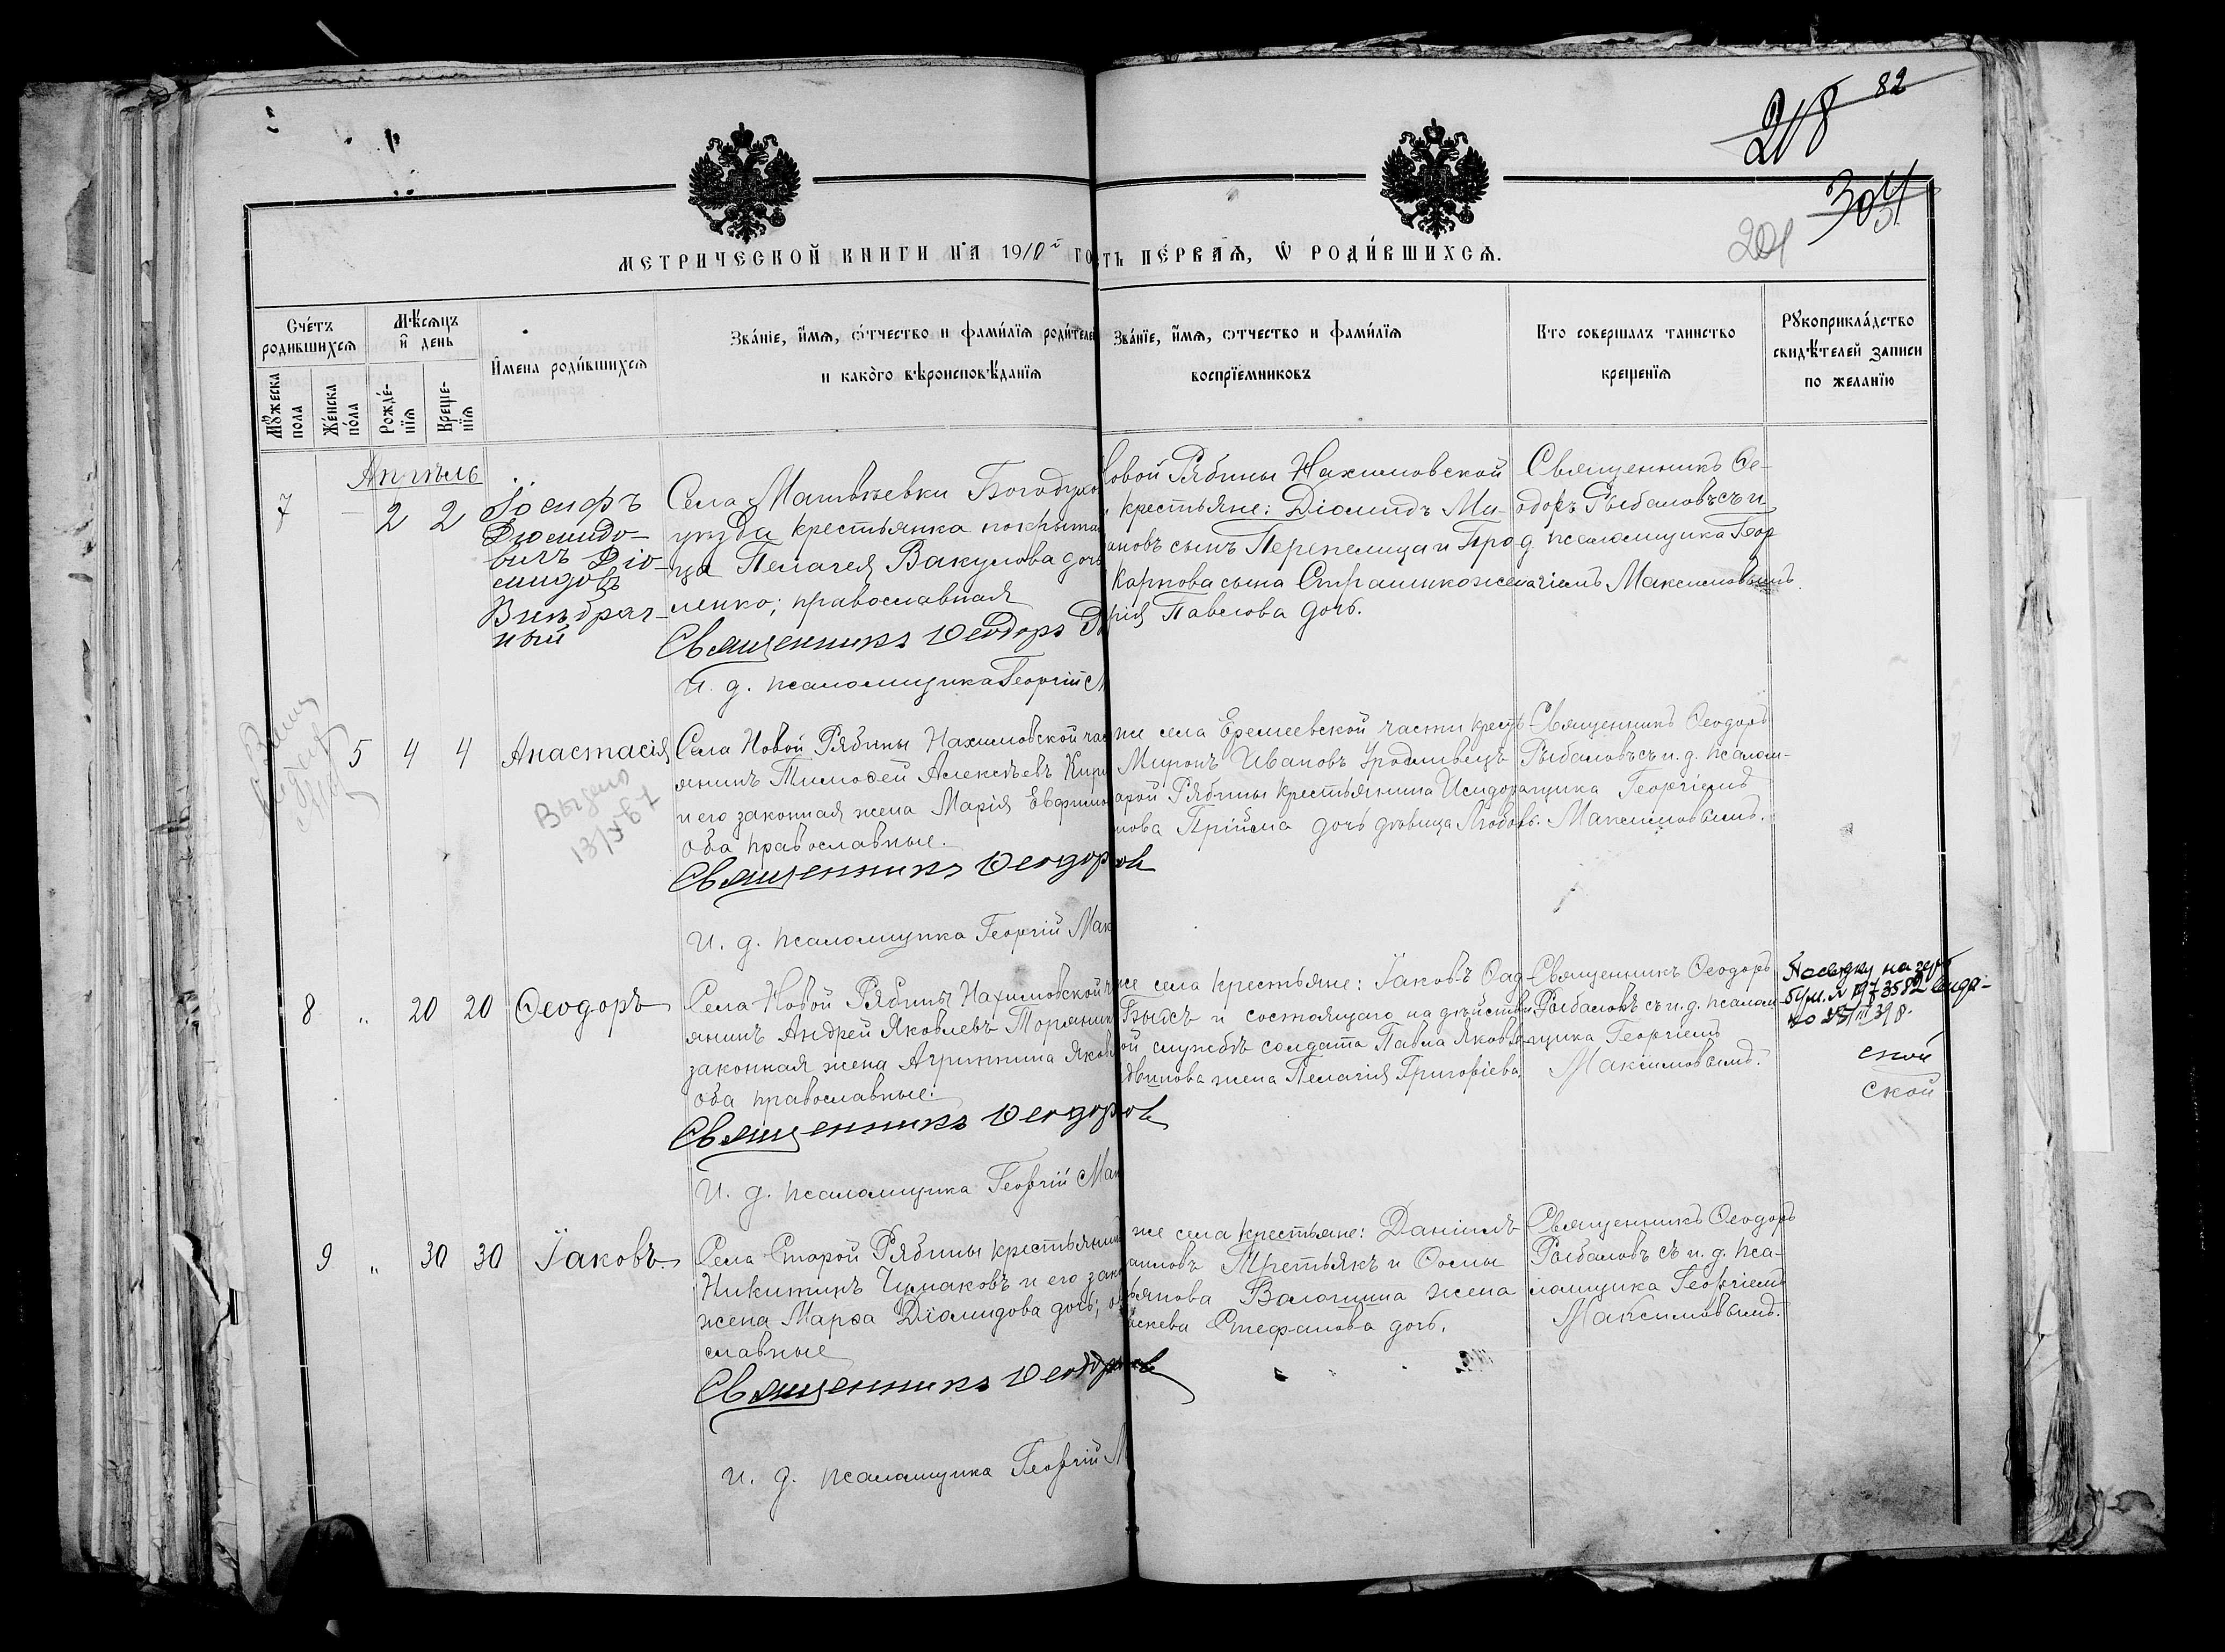 82
218
304
201
МЕТРИЧЕСКОЙ КНИГИ НА 1910й ГО
СТЬ ПЕРВАЯ, Ѡ РОДИВШИХСЯ.
Счетъ родившихся
Мужеска пола
Женска пола
Мѣсяцъ и день
Рожденія
Крещенія
Имена родившихся
Званіе, имя, отчество и фамилія родителе
и какого вѣроисповѣданія
Званіе, имя, отчество и фамилія
воспріемниковъ
Кто совершалъ таинство
крещенія
Рукоприкладство
свидѣтелей записи
по желанію
Апрѣль
7 — 2 2
Іосифъ
Диомидо-
вичъ Діо-
мидовъ
Внѣбрач-
ный
Села Матвѣевки Богодухо
уѣзда крестьянка
ца Пелагея Вакулова дочь
ленко; православная
Священникъ Ѳеодоръ
И. д. псаломщика Георгій
овой Рябины Нахимовской
крестьяне: Діомидъ Ми-
ановъ сынъ Перепелица и
Карпова сына жена
рія Павлова дочь.
Священникъ Ѳе-
одоръ Рыбаловъ съ и.
д. псаломщика Геор
гіемъ Максимовымъ.
5 4 4
Анастасія
Выдано
Села Новой Рябины Нахимовской час
янинъ Тимоѳей Алексѣевъ Кир
и его законная жена Марія Евфимо
оба православные.
Священникъ Ѳеодор
И. д. псаломщика Георгій Мак
же села Еремеевской части крест
Миронъ Ивановъ Уродливецъ
арой Рябины крестьянина Исидора
нова Прійма дочь дѣвица Любовь.
Священникъ Ѳеодоръ
Рыбаловъ съ и. д. псалом-
щика Георгіемъ
Максимовымъ.
8 „ 20 20
Ѳеодоръ
Села Новой Рябины Нахимовской ч
янинъ Андрей Яковлевъ Торяник
законная жена Агриппина Яков
оба православные.
Священникъ Ѳеодор
И. д. псаломщика Георгій Мак
же села крестьяне: Іаковъ Ѳад-
Быкъ и состоящаго на дѣйстви
ой службѣ солдата Павла Яковл
двинова жена Пелагія Григоріева.
Священникъ Ѳеодоръ
Рыбаловъ съ и. д. псалом-
щика Георгіемъ
Максимовымъ.
ской
ской
9 „ 30 30
Іаковъ
Села Старой Рябины крестьянин
Никитинъ Чумаковъ и его зако
жена Марѳа Діомидова дочь; о
славные
Священникъ Ѳеодор
И. д. псаломщика Георгій М
же села крестьяне: Даніилъ
аиловъ Третьякъ и Ѳомы
ьянова Вологшина жена
аскева Стефанова дочь.
Священникъ Ѳеодоръ
Рыбаловъ съ и. д. пса-
ломщика Георгіемъ
Максимовымъ.